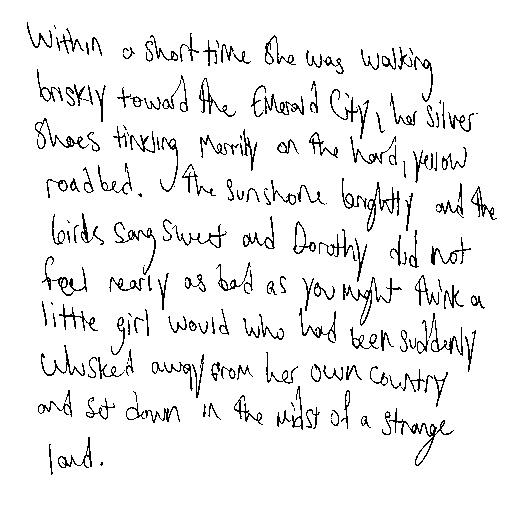 Within a short time she was walking
briskly toward the Emerald City, her silver
shoes tinkling merrily on the hard, yellow
roadbed. The sunshone brightly and the
birds sang sweet and Dorothy did not
feel nearly as bad as you might think a
little girl would who had been suddenly
whisked away from her own country
and set down in the midst of a strange
land.